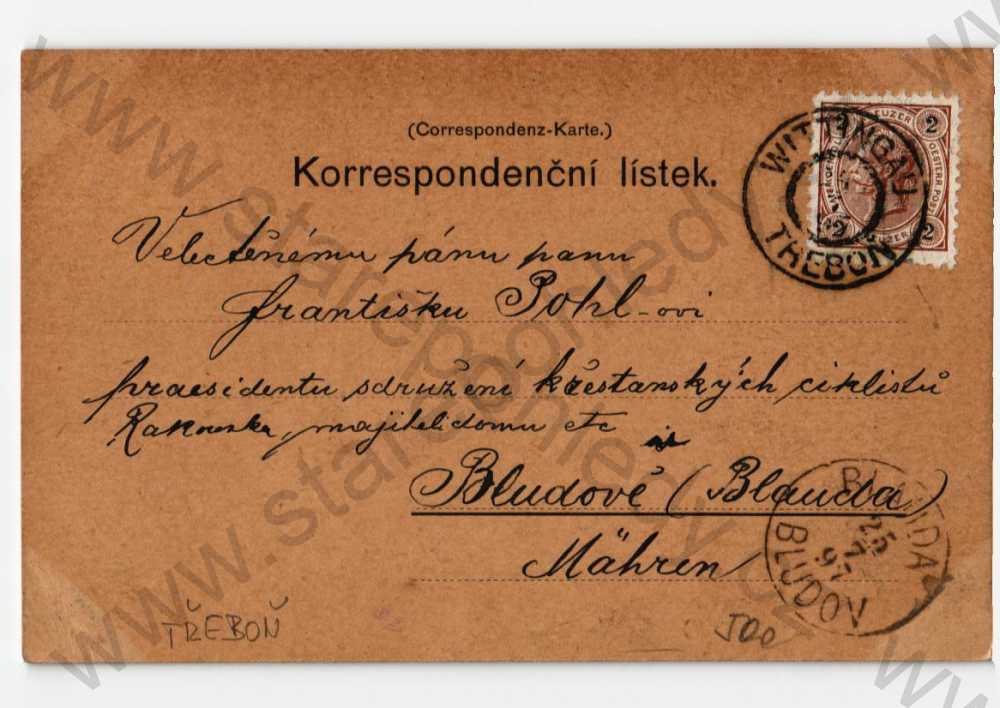 (Correspondenz-Karte.)
Korrespondenční lístek.
2 KREUZER 2
OESTERR. POST
2 KREUZER 2
WITTINGAU
TŘEBOŇ
Velectěnému pánu panu
Františku Pohl-ovi
praesidentu sdružení křestanských ciklistů
Rakouska, majiteli domu etc
Bludově (Blauda)
Mähren
BLAUDA
25
7
97
BLUDOV
TŘEBOŇ
500
www.starepohledy.cz